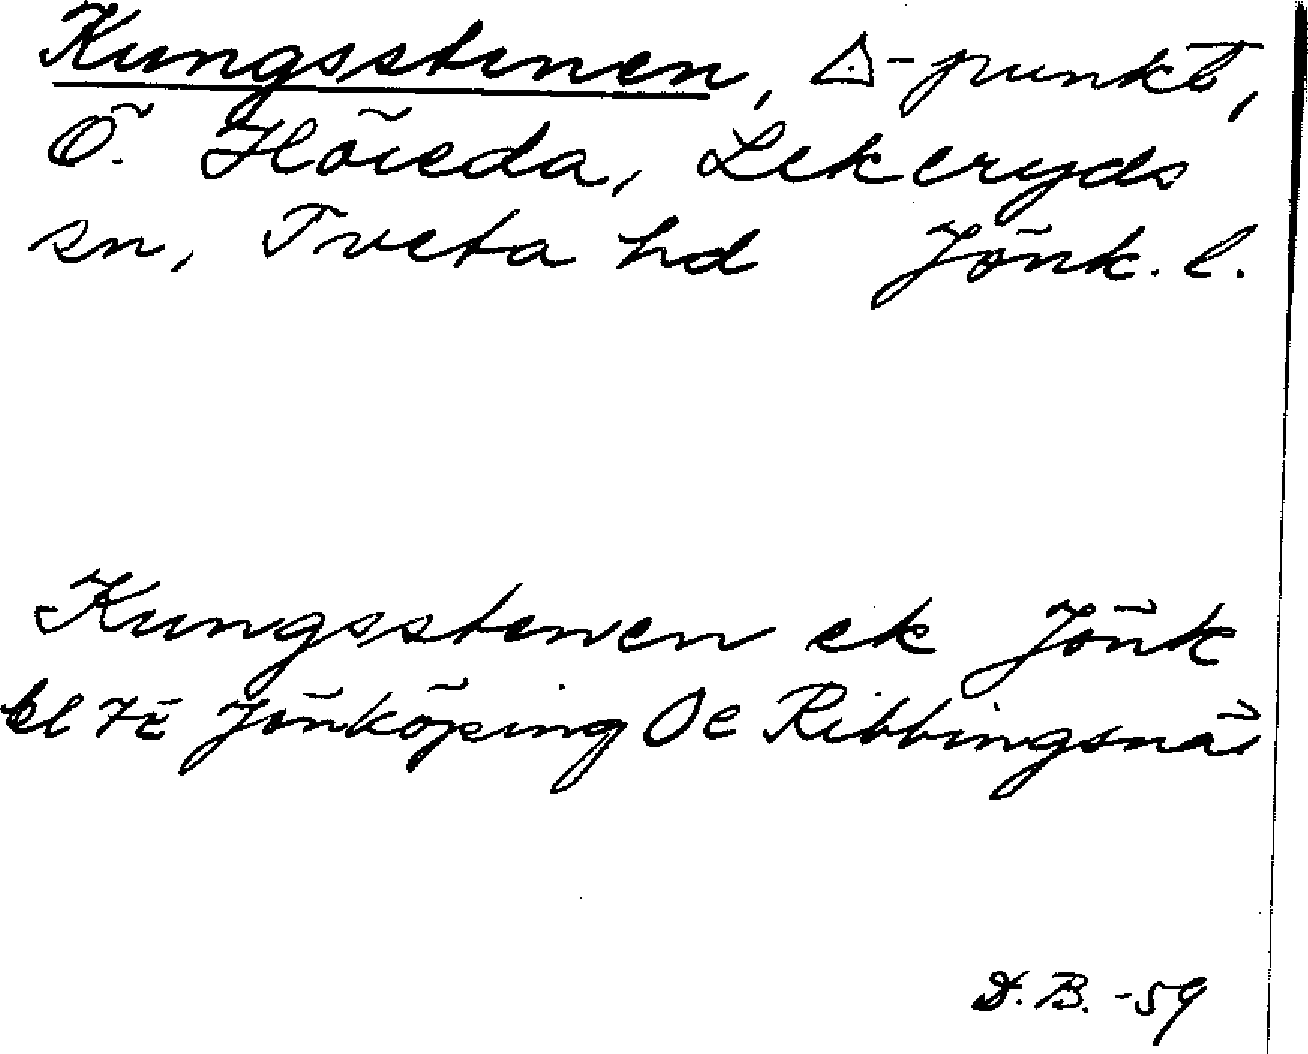 Kungsstenen, △-punkt,
Ö. Höreda, Lekeryds
sn, Tveta hd Jönk. l.
Kungsstenen ek Jönk
bl 7E Jönköping Oe Ribbingsnäs
D.B. -59